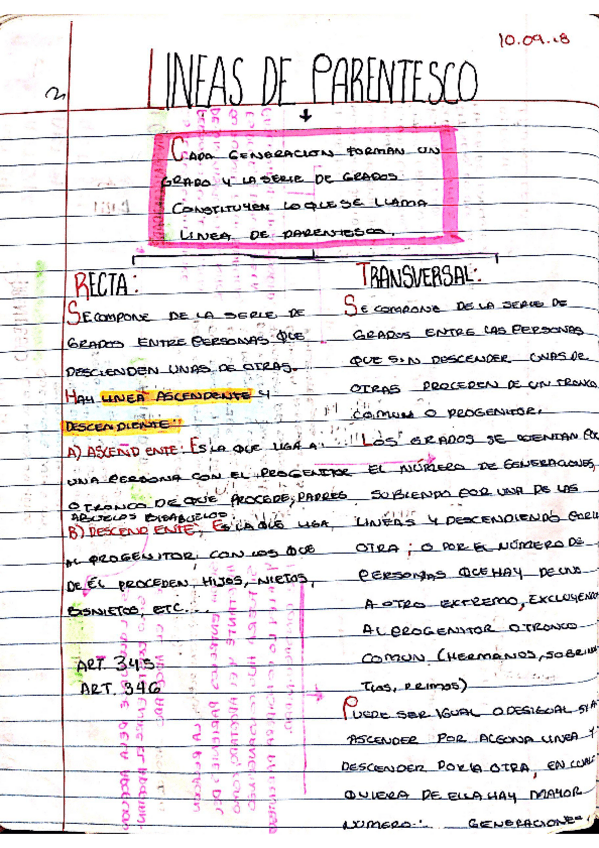 10.09.18
2
LINEAS DE PARENTESCO
CADA GENERACION FORMAN UN
GRADO Y LA SERIE DE GRADOS
CONSTITUYEN LO QUE SE LLAMA
LINEA DE PARENTESCO.
RECTA:
SE COMPONE DE LA SERIE DE
GRADOS ENTRE PERSONAS QUE
DESCIENDEN UNAS DE OTRAS.
HAY LINEA ASCENDENTE Y
DESCENDIENTE:
A) ASCENDENTE: ES LA QUE LIGA A
UNA PERSONA CON EL PROGENITOR
O TRONCO DE QUE PROCEDE; PADRES
ABUELOS BISABUELOS
B) DESCENDENTE; ES LA QUE LIGA,
AL PROGENITOR CON LOS QUE
DE ÉL PROCEDEN, HIJOS, NIETOS,
BISNIETOS, ETC...
ART. 345
ART. 346
TRANSVERSAL:
SE COMPONE DE LA SERIE DE
GRADOS ENTRE LAS PERSONAS
QUE SIN DESCENDER UNAS DE
OTRAS PROCEDEN DE UN TRONCO
COMUN O PROGENITOR.
LOS GRADOS SE CUENTAN POR
EL NÚMERO DE GENERACIONES,
SUBIENDO POR UNA DE LAS
LINEAS Y DESCENDIENDO POR LA
OTRA; O POR EL NÚMERO DE
PERSONAS QUE HAY DE UNO
A OTRO EXTREMO, EXCLUYENDO
AL PROGENITOR O TRONCO
COMUN (HERMANOS, SOBRIN
TIOS, PRIMOS)
PUEDE SER IGUAL O DESIGUAL SI A
ASCENDER POR ALGUNA LINEA Y
DESCENDER POR LA OTRA, EN CUAL
QUIERA DE ELLA HAY MAYOR
NÚMERO. GENERACIONES